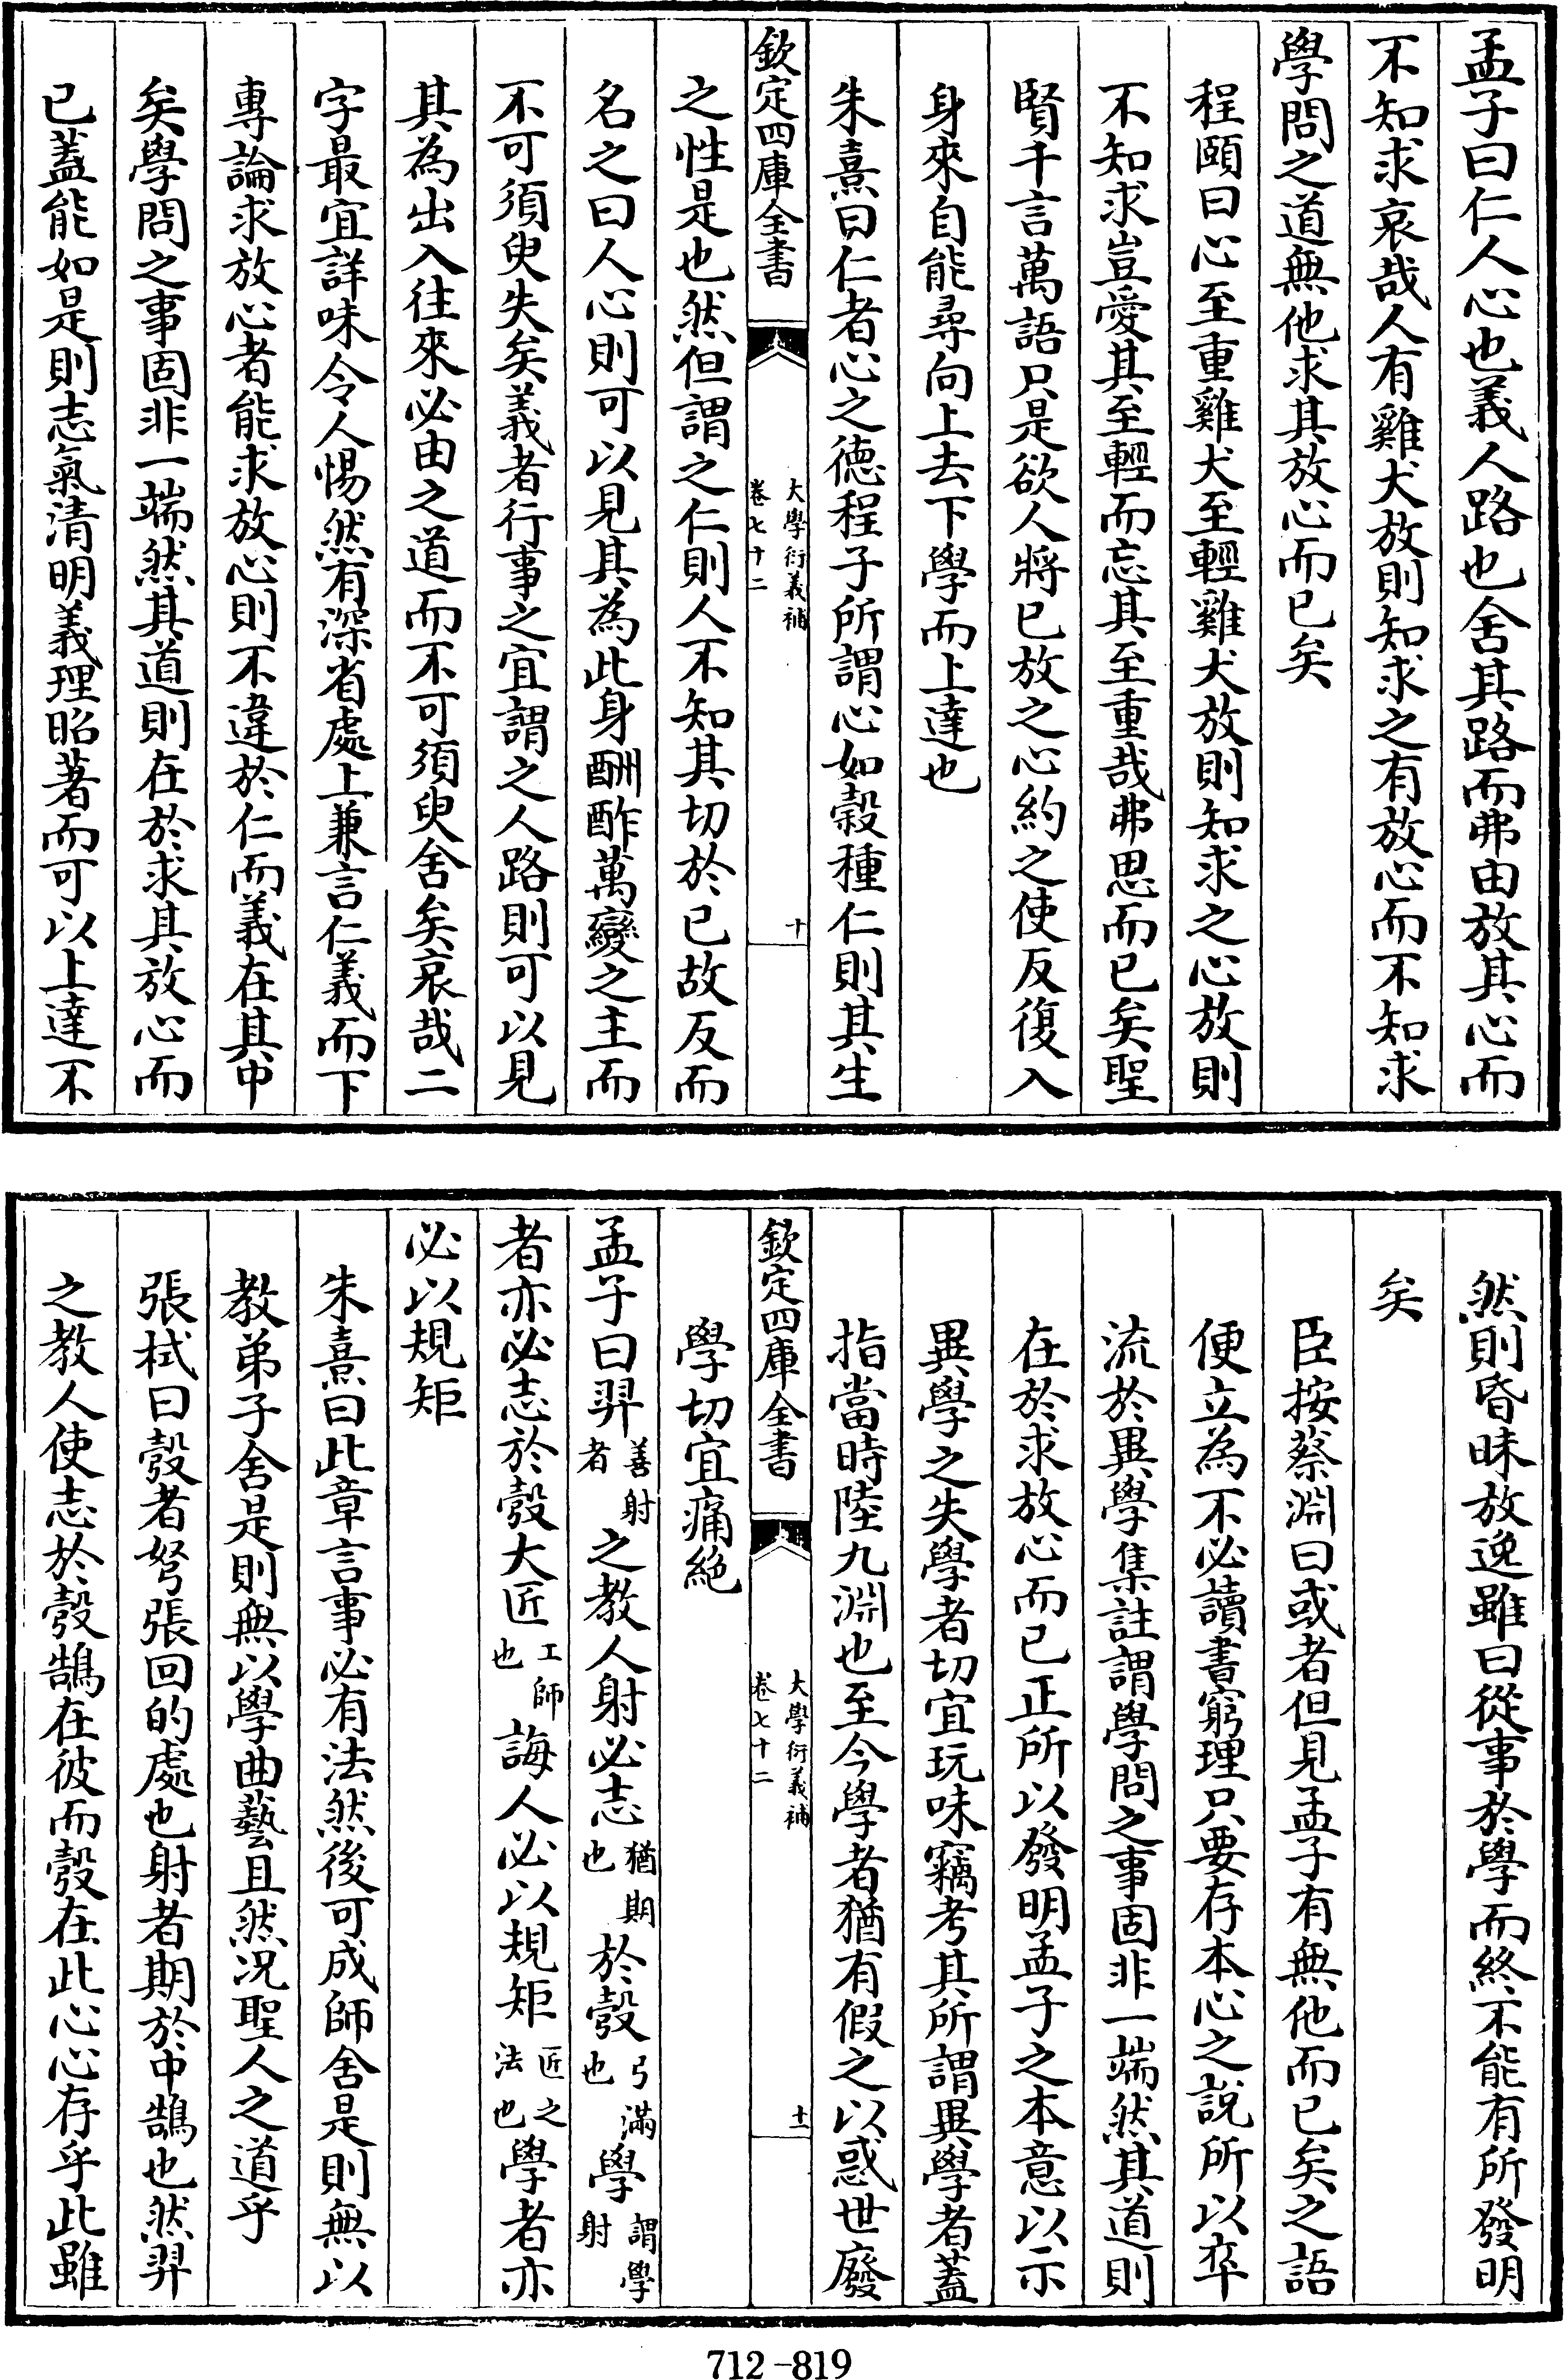 孟子曰仁人心也義人路也舍其路而弗由放其心而
不知求哀哉人有雞犬放則知求之有放心而不知求
學問之道無他求其放心而已矣
程頤曰心至重雞犬至輕雞犬放則知求之心放則
不知求豈愛其至輕而忘其至重哉弗思而已矣聖
賢千言萬語只是欲人將已放之心約之使反復入
身來自能尋向上去下學而上達也
朱熹曰仁者心之德程子所謂心如穀種仁則其生
欽定四庫全書
大學衍義補
卷七十二
十
之性是也然但謂之仁則人不知其切於已故反而
名之曰人心則可以見其為此身酬酢萬變之主而
不可須臾失矣義者行事之宜謂之人路則可以見
其為出入往來必由之道而不可須臾舍矣哀哉二
字最宜詳味令人惕然有深省處上兼言仁義而下
專論求放心者能求放心則不違於仁而義在其中
矣學問之事固非一端然其道則在於求其放心而
已蓋能如是則志氣清明義理昭著而可以上達不
然則昏昧放逸雖曰從事於學而終不能有所發明
矣
臣按蔡淵曰或者但見孟子有無他而已矣之語
便立為不必讀書窮理只要存本心之說所以卒
流於異學集註謂學問之事固非一端然其道則
在於求放心而已正所以發明孟子之本意以示
異學之失學者切宜玩味竊考其所謂異學者蓋
指當時陸九淵也至今學者猶有假之以惑世廢
欽定四庫全書
大學衍義補
卷七十二
十一
學切宜痛絕
孟子曰羿善射者之教人射必志猶期也於彀弓滿也學謂學射
者亦必志於彀大匠工師也誨人必以規矩匠之法也學者亦
必以規矩
朱熹曰此章言事必有法然後可成師舍是則無以
教弟子舍是則無以學曲藝且然况聖人之道乎
張栻曰彀者弩張回的處也射者期於中鵠也然羿
之教人使志於彀鵠在彼而彀在此心心存乎此雖
712-819